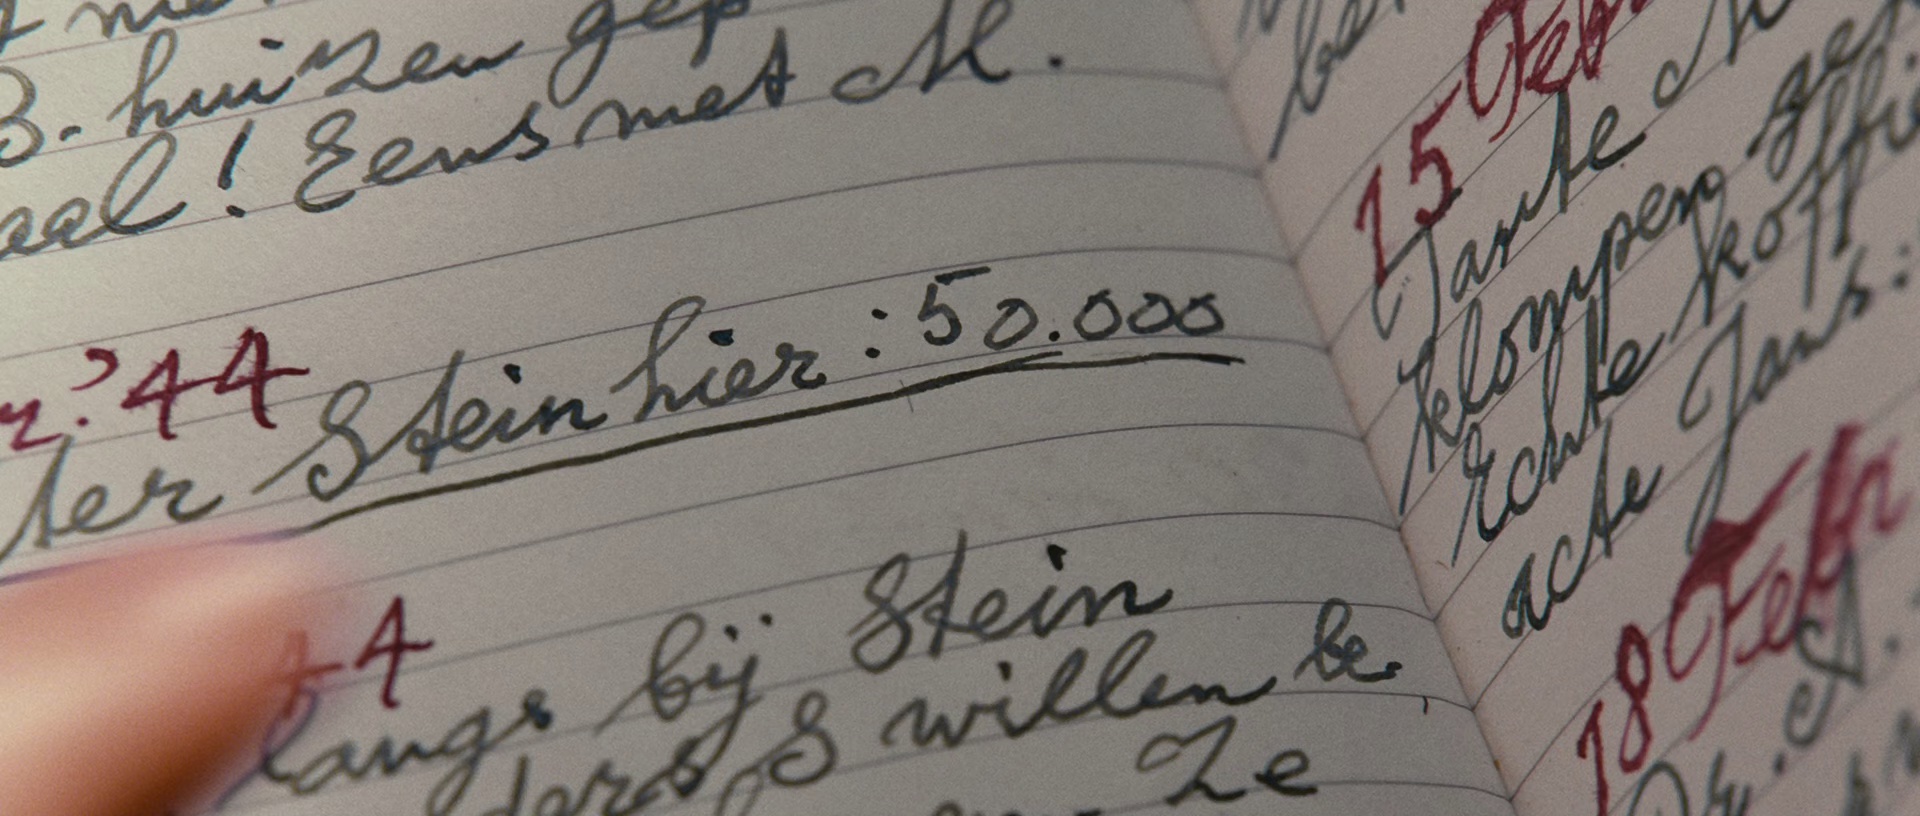 B. huizen gep
aal! Eens met M.
'44
ter Stein hier : 50.000
4
langs bij Stein
ders S willen be.
Ze
15 Febr
Tante
klompen
Echte koffie
acte Jans:
18 Febr
Dr. A.